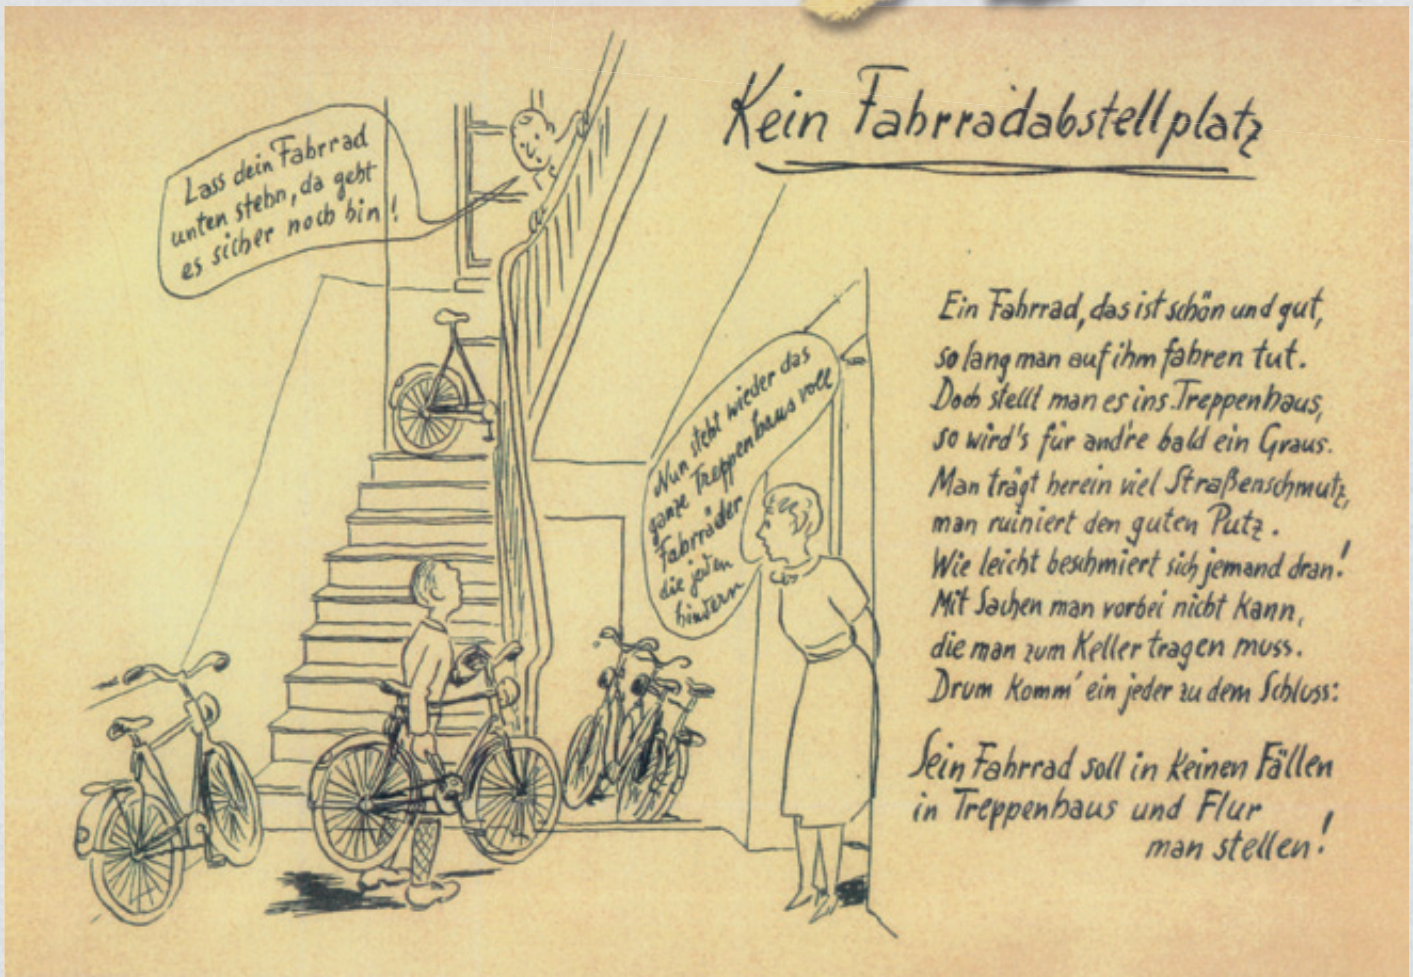 Kein Fahrradabstellplatz
Lass dein Fahrrad
unten stehn, da geht
es sicher noch hin!
Nun steht wieder das
ganze Treppenhaus voll
Fahrräder
die jeden
hindern
Ein Fahrrad, das ist schön und gut,
so lang man auf ihm fahren tut.
Doch stellt man es ins Treppenhaus,
so wird's für and're bald ein Graus.
Man trägt herein viel Straßenschmutz,
man ruiniert den guten Putz.
Wie leicht beschmiert sich jemand dran!
Mit Sachen man vorbei nicht kann,
die man zum Keller tragen muss.
Drum komm' ein jeder zu dem Schluss:
Sein Fahrrad soll in keinen Fällen
in Treppenhaus und Flur
man stellen!